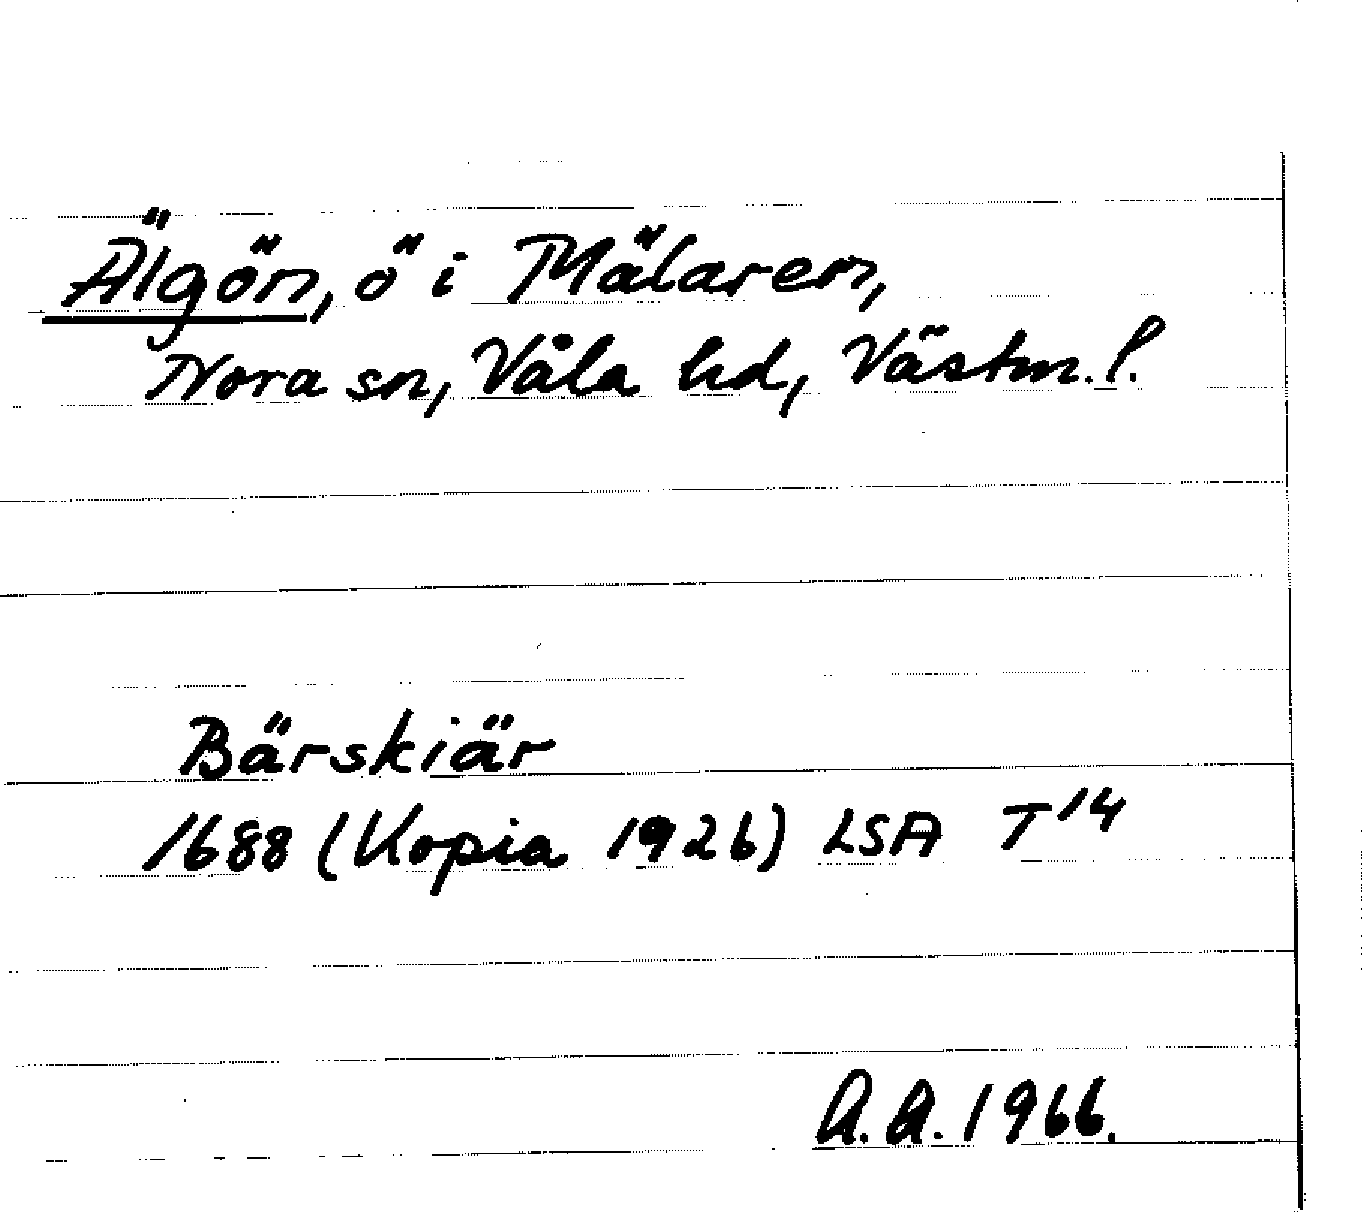 Älgön, ö i Mälaren,
Nora sn, Våla hd, Västm. l.
Bärskiär
1688 (Kopia 1926) LSA T 14
A. A. 1966.